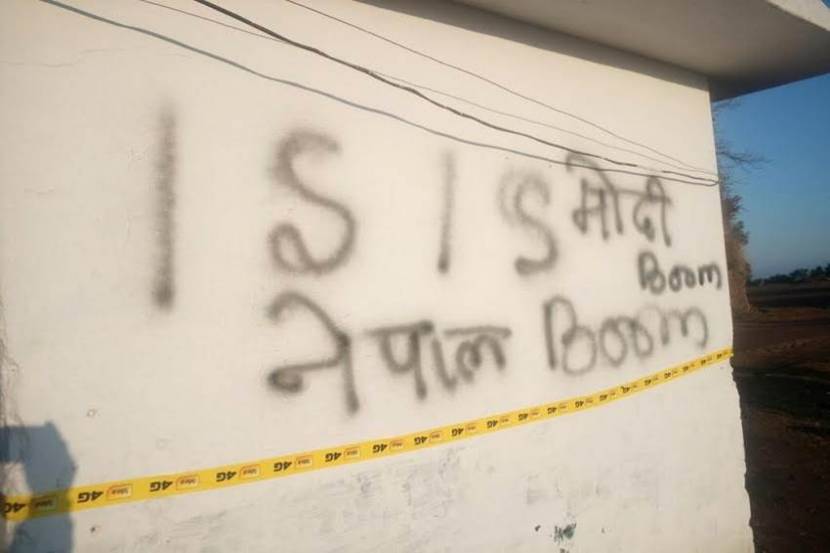 ISIS मोदी
Boom
नेपाल Boom
4G Idea 4G Idea 4G Idea 4G Idea 4G Idea 4G Idea 4G Idea 4G Idea 4G